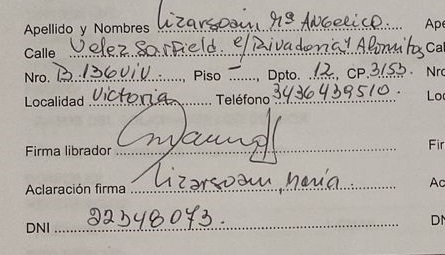 Apellido y Nombres Lizarsoain Mª Angelica. Ape
Calle Velez Sarfield e/Rivadavia y Cal
Nro. B. 136 VIV. Piso - Dpto. 12, CP. 3153. Nro
Localidad Victoria Teléfono 3436439510. Loc
Firma librador Fir
Aclaración firma Lizarsoain, María Ac
DNI 22348073. DN